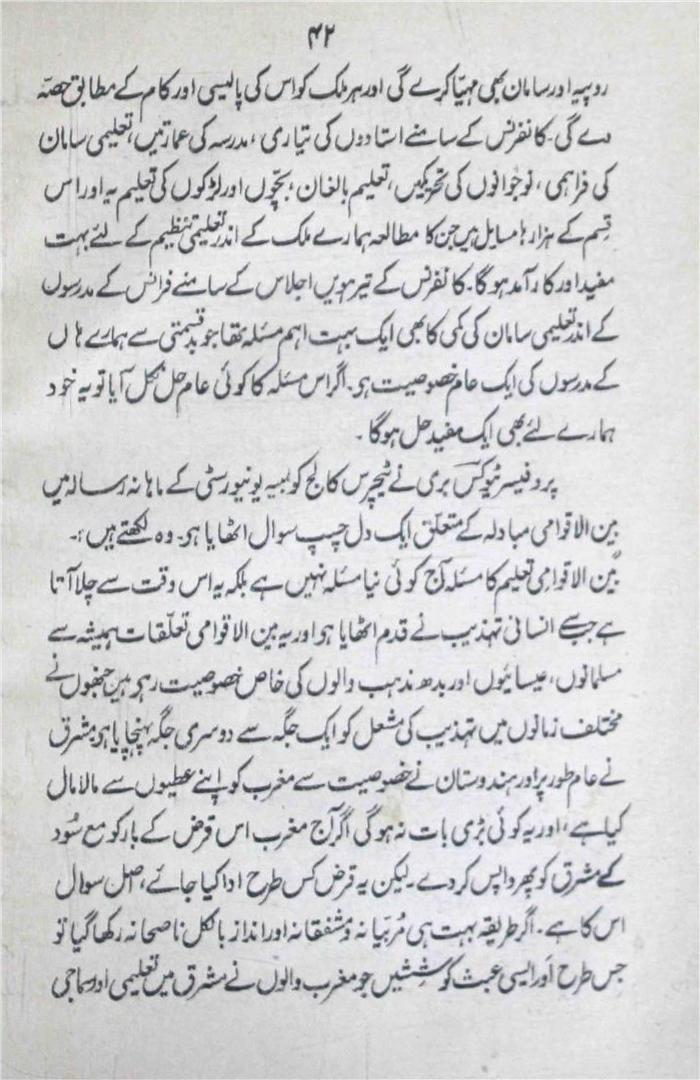 ۴۲
روپیہ اور سامان بھی مہیّا کرے گی اور ہر ملک کو اس کی پالیسی اور کام کے مطابق حصّہ
دے گی۔ کانفرنس کے سامنے استادوں کی تیاری، مدرسہ کی عمارتیں، تعلیمی سامان
کی فراہمی، نوجوانوں کی تحریکیں، تعلیم بالغان، بچّوں اور لڑکوں کی تعلیم یہ اور اس
قسم کے ہزارہا مسایل ہیں جن کا مطالعہ ہمارے ملک کے اندر تعلیمی تنظیم کے لئے بہت
مفید اور کارآمد ہوگا۔ کانفرنس کے تیرھویں اجلاس کے سامنے فرانس کے مدرسوں
کے اندر تعلیمی سامان کی کمی کا بھی ایک بہت اہم مسئلہ تھا جو بدقسمتی سے ہمارے ہاں
کے مدرسوں کی ایک عام خصوصیت ہو۔ اگر اس مسئلہ کا کوئی عام حل نکل آیا تو یہ خود
ہمارے لئے بھی ایک مفید حل ہوگا۔
پروفیسر ٹیوکس بری نے ٹیچرس کالج کولمبیہ یونیورسٹی کے ماہانہ رسالہ میں
بین الاقوامی مبادلہ کے متعلق ایک دل چسپ سوال اٹھایا ہو۔ وہ لکھتے ہیں :۔
"بین الاقوامی تعلیم کا مسئلہ آج کوئی نیا مسئلہ نہیں ہے بلکہ یہ اس وقت سے چلا آتا
ہے جب سے انسانی تہذیب نے قدم اٹھایا ہو اور یہ بین الاقوامی تعلّقات ہمیشہ سے
مسلمانوں، عیسائیوں اور بدھ مذہب والوں کی خاص خصوصیت رہی ہیں جنھوں نے
مختلف زمانوں میں تہذیب کی مشعل کو ایک جگہ سے دوسری جگہ پہنچایا ہو مشرق
نے عام طور پر اور ہندوستان نے خصوصیت سے مغرب کو اپنے عطیوں سے مالا مال
کیا ہے، اور یہ کوئی بڑی بات نہ ہوگی اگر آج مغرب اس قرض کے بار کو مع سُود
کے مشرق کو پھر واپس کر دے۔ لیکن یہ قرض کس طرح ادا کیا جائے، اصل سوال
اس کا ہے۔ اگر طریقہ بہت ہی مُربّیانہ و مشفقانہ اور انداز بالکل ناصحانہ رکھا گیا تو
جس طرح اَور ایسی عبث کوششیں جو مغرب والوں نے مشرق میں تعلیمی اور سماجی